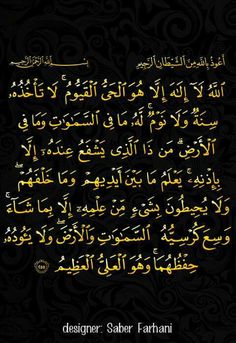 أَعُوذُ بِاللَّهِ مِنَ الشَّيْطَانِ الرَّجِيمِ بِسْمِ اللَّهِ الرَّحْمَٰنِ الرَّحِيمِ
ٱللَّهُ لَآ إِلَٰهَ إِلَّا هُوَ ٱلْحَىُّ ٱلْقَيُّومُ ۚ لَا تَأْخُذُهُۥ
سِنَةٌ وَلَا نَوْمٌ ۚ لَّهُۥ مَا فِى ٱلسَّمَٰوَٰتِ وَمَا فِى
ٱلْأَرْضِ ۗ مَن ذَا ٱلَّذِى يَشْفَعُ عِندَهُۥٓ إِلَّا
بِإِذْنِهِۦ ۚ يَعْلَمُ مَا بَيْنَ أَيْدِيهِمْ وَمَا خَلْفَهُمْ ۖ
وَلَا يُحِيطُونَ بِشَىْءٍ مِّنْ عِلْمِهِۦٓ إِلَّا بِمَا شَآءَ ۚ
وَسِعَ كُرْسِيُّهُ ٱلسَّمَٰوَٰتِ وَٱلْأَرْضَ ۖ وَلَا يَـُٔودُهُۥ
حِفْظُهُمَا ۚ وَهُوَ ٱلْعَلِىُّ ٱلْعَظِيمُ ٢٥٥
designer: Saber Farhani